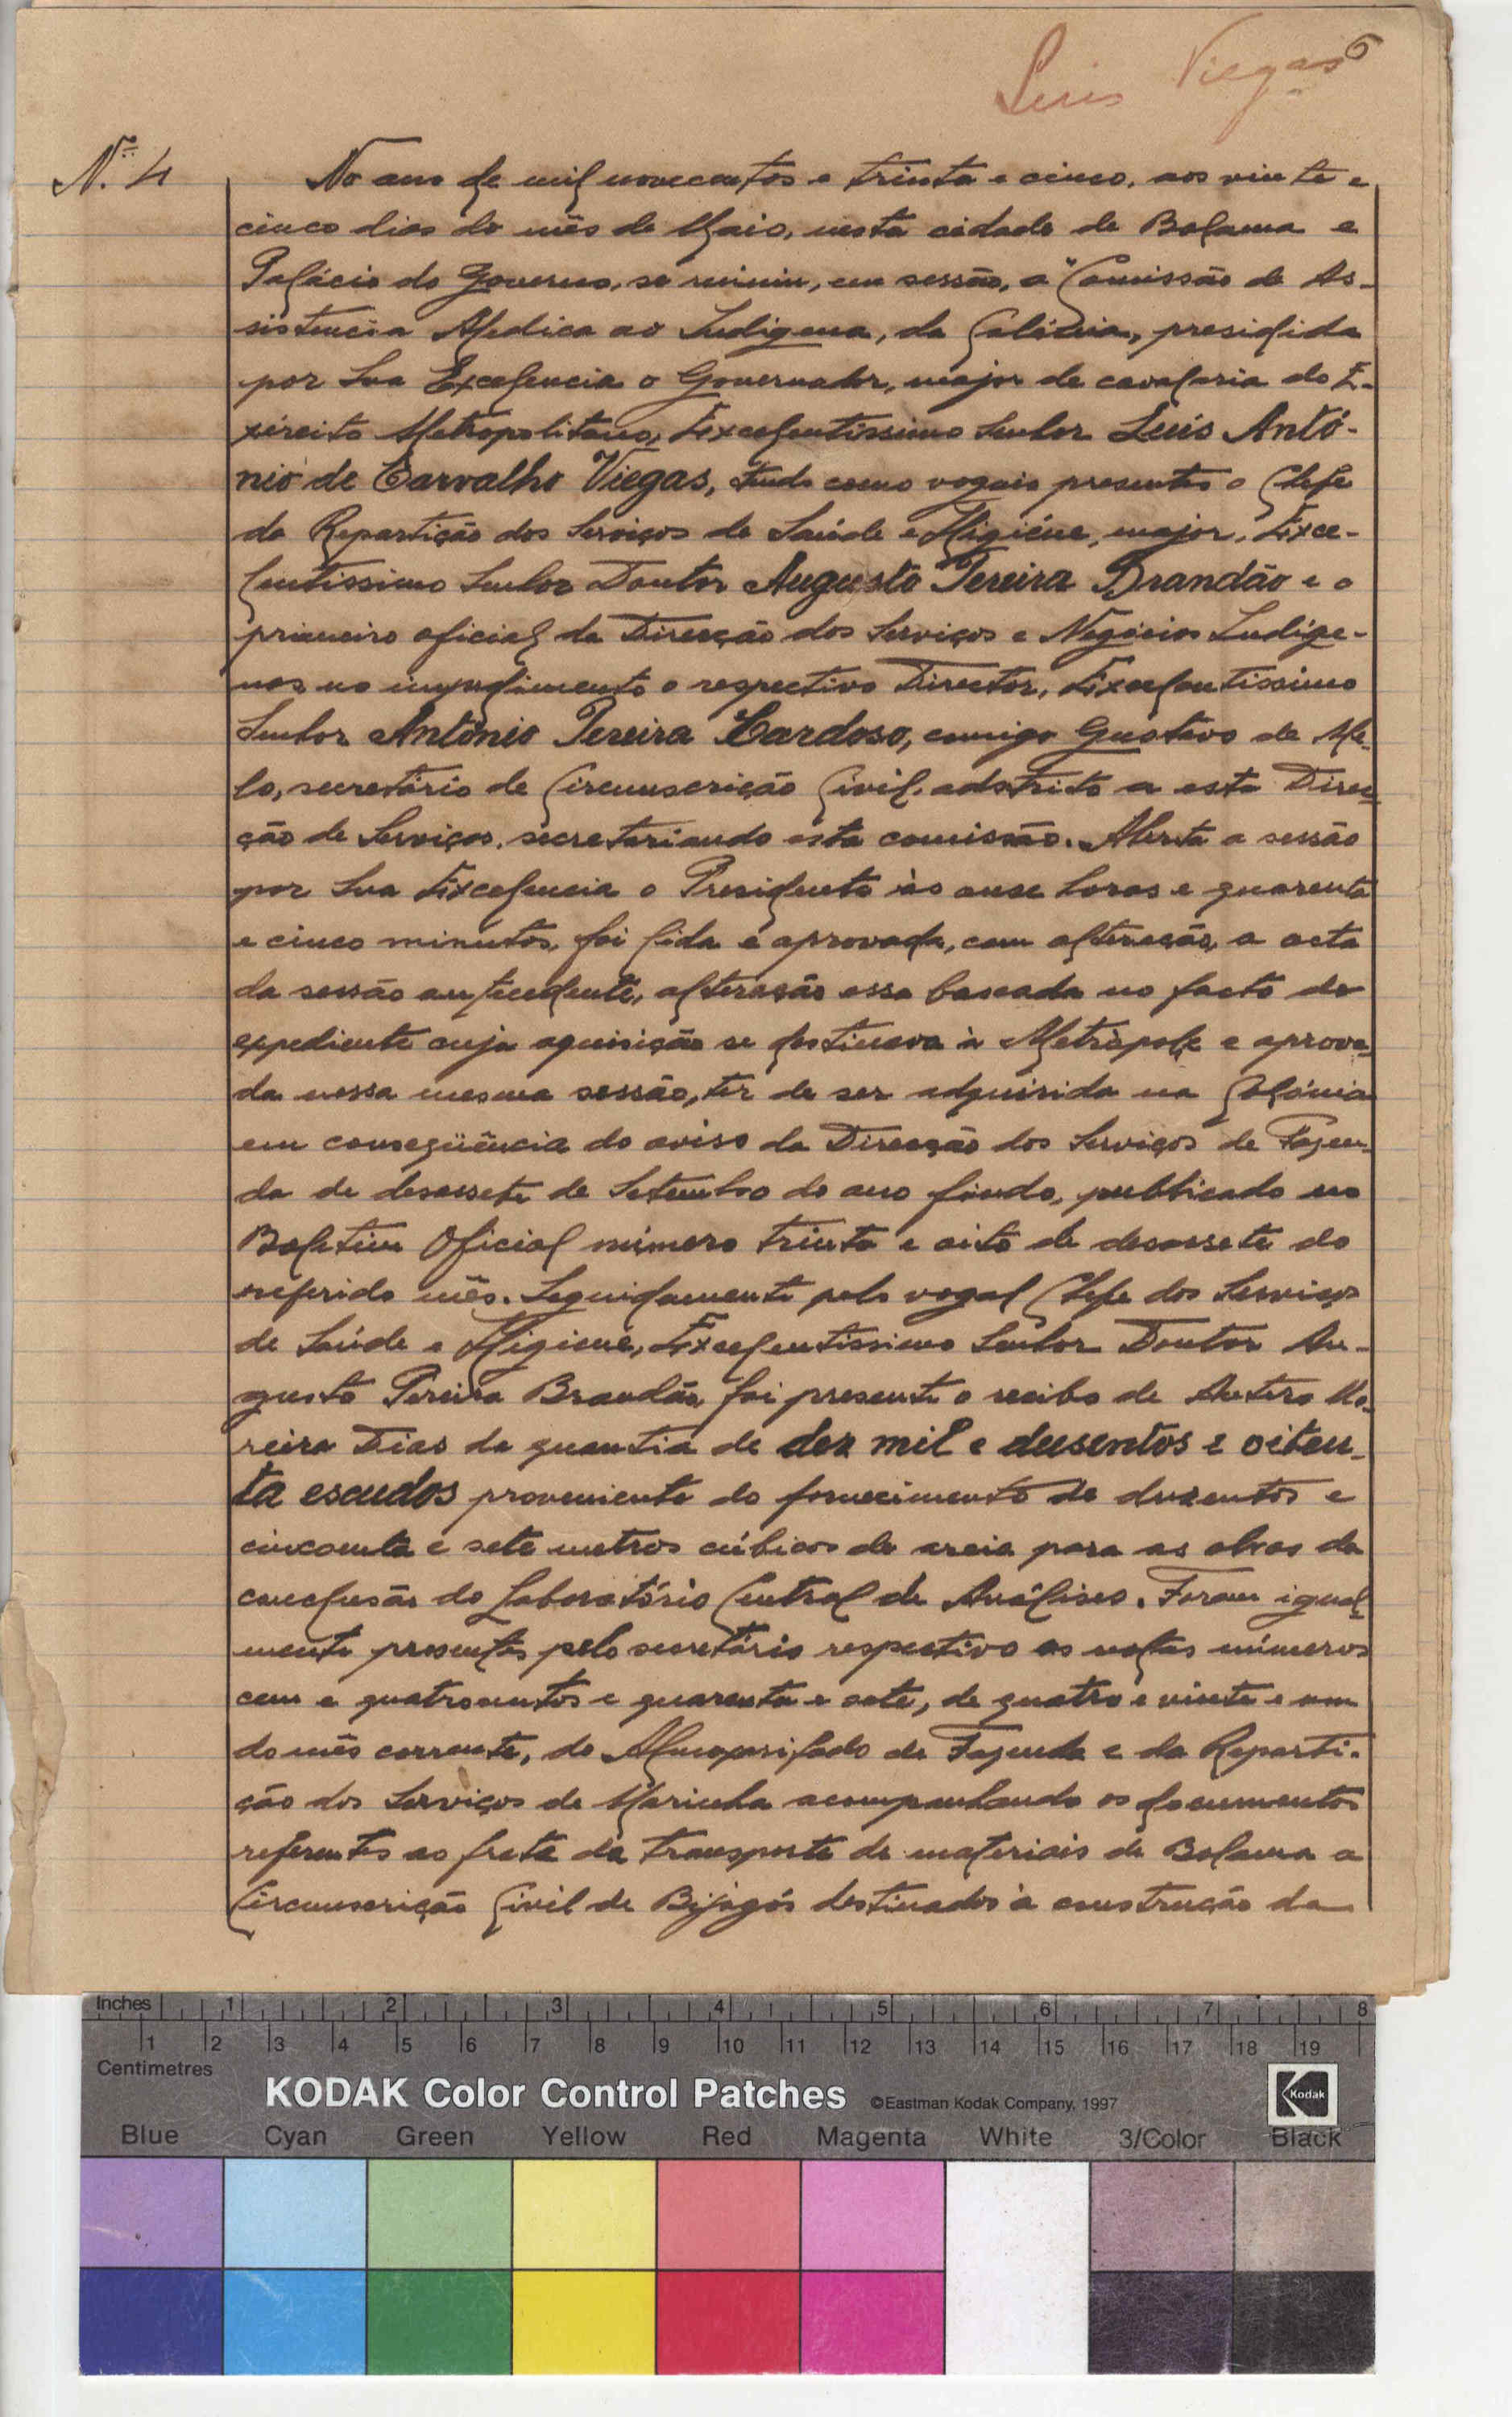 Luis Viegas 6
N.º 4
No ano de mil novecentos e trinta e cinco, aos vinte e
cinco dias do mês de Maio, nesta cidade de Bolama e
Palácio do Governo, se reùniu, em sessão, a "Comissão de As-
sistencia Medica ao Indigena, da Colónia, presidida
por Sua Excelencia o Governador, major de cavalaria do E-
xército Metropolitano, Excelentissimo Senhor Luis Antó-
nio de Carvalho Viegas, tendo como vogais presentes o Chefe
da Repartição dos Serviços de Saúde e Higiéne, major, Exce-
lentissimo Senhor Doutor Augusto Pereira Brandão e o
primeiro oficial da Direcção dos Serviços e Negócios Indige-
nas no impedimento o respectivo Director, Excelentissimo
Senhor António Pereira Cardoso, comigo Gustavo de Me-
lo, secretário de Circunscrição Civil, adstrito a esta Direc-
ção de Serviços, secretariando esta comissão. Aberta a sessão
por Sua Excelencia o Presidente às onse horas e quarenta
e cinco minutos, foi lida e aprovada, com alteração, a acta
da sessão antecedente, alteração essa baseada no facto do
expediente cuja aquisição se destinava à Metrópole e aprova-
da nessa mesma sessão, ter de ser adquirida na Colónia
em conseqüência do aviso da Direcção dos Serviços de Fazen-
da de desassete de Setembro do ano findo, publicado no
Boletim Oficial número trinta e oito de desassete do
referido mês. Seguidamente pelo vogal Chefe dos Serviços
de Saúde e Higiene, Excelentissimo Senhor Doutor Au-
gusto Pereira Brandão, foi presente o recibo de Antero Mo-
reira Dias da quantia de dez mil e dusentos e oiten-
ta escudos proveniente do fornecimento de duzentos e
cincoenta e sete metros cúbicos de areia para as obras da
conclusão do Laboratório Central de Análises. Foram igual-
mente presentes pelo secretário respectivo as notas números
cem e quatrocentos e quarenta e sete, de quatro e vinte e um
do mês corrente, do Almoxarifado de Fazenda e da Reparti-
ção dos Serviços de Marinha acompanhando os documentos
referentes ao frete de transporte de materiais de Bolama a
Circunscrição Civil de Bijagós destinados à construção da
Inches 1 2 3 4 5 6 7 8
1 2 3 4 5 6 7 8 9 10 11 12 13 14 15 16 17 18 19
Centimetres
KODAK Color Control Patches ©Eastman Kodak Company, 1997 Kodak
Blue Cyan Green Yellow Red Magenta White 3/Color Black